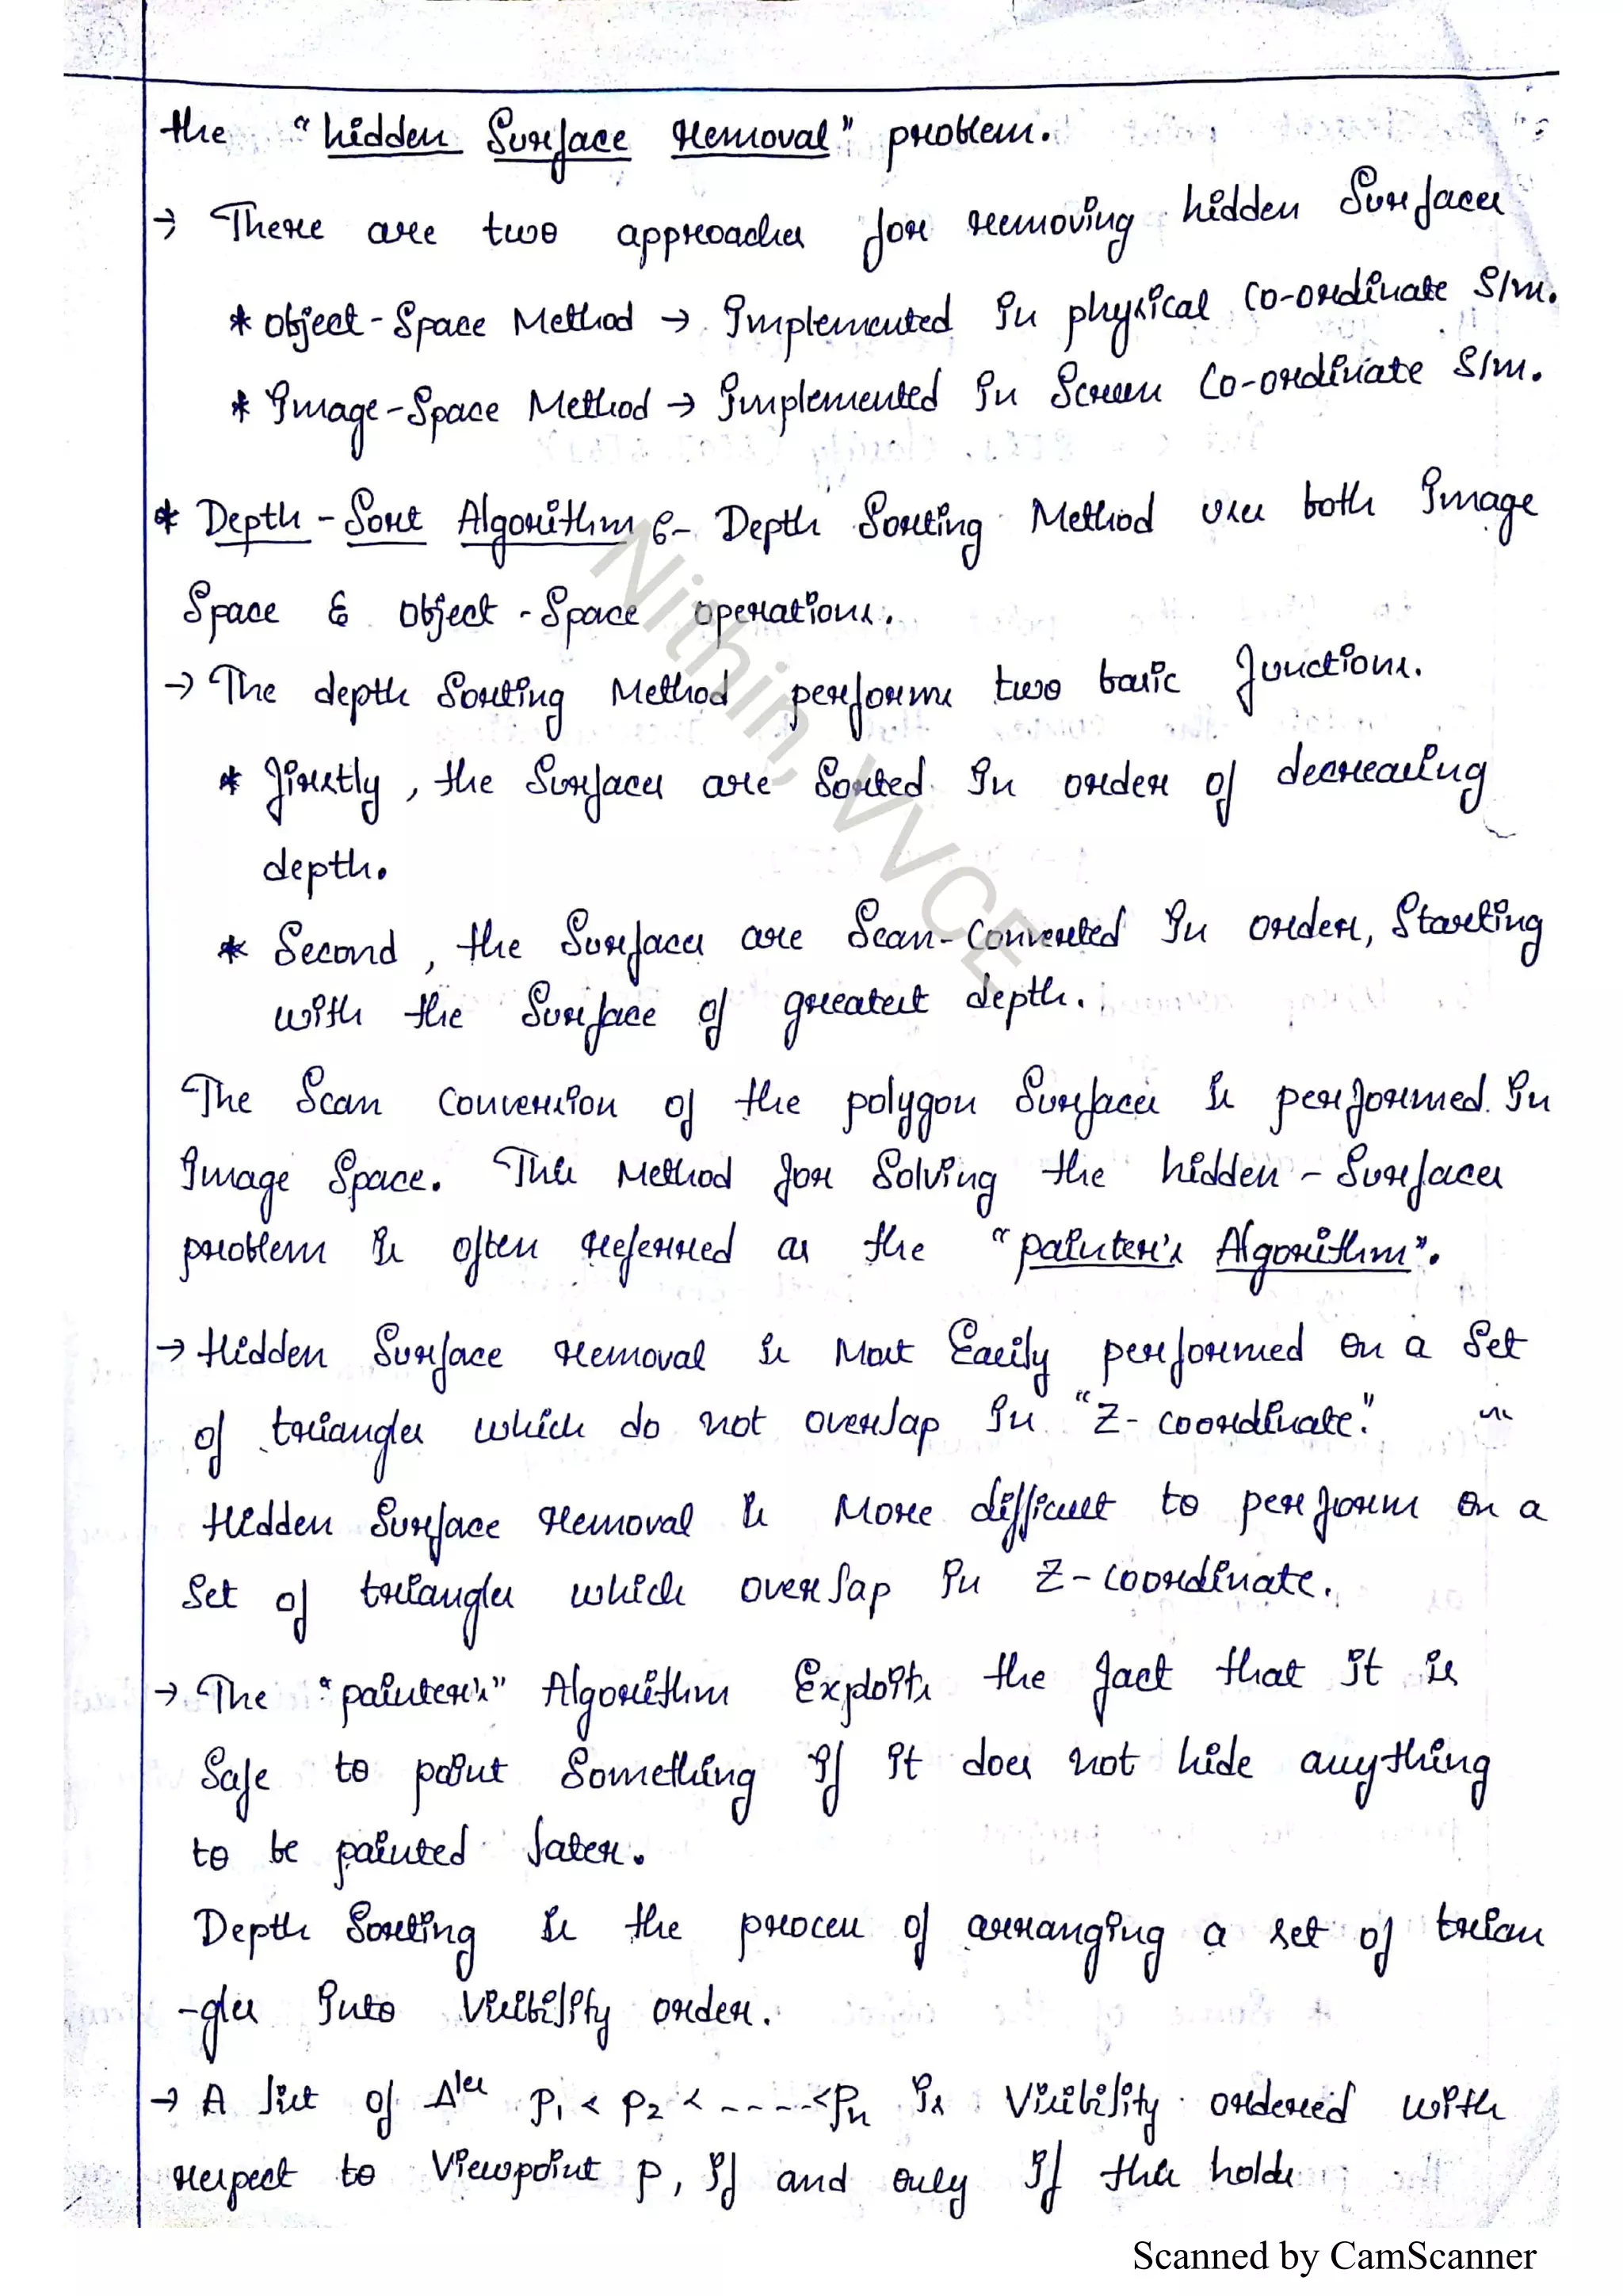 the "hidden Surface removal" problem.
→ There are two approaches for removing hidden Surfaces
* object-Space Method → Implemented in physical co-ordinate S/m.
* Image-Space Method → Implemented in Screen Co-ordinate S/m.
* Depth-Sort Algorithm :- Depth Sorting Method uses both Image
Space & object-Space operations.
→ The depth Sorting Method performs two basic functions.
* firstly, the Surfaces are Sorted in order of decreasing
depth.
* Second, the Surfaces are Scan-Converted in order, Starting
with the Surface of greatest depth.
The Scan Conversion of the polygon Surfaces is performed in
Image Space. This Method for Solving the hidden-Surfaces
problem is often referred as the "painter's Algorithm".
→ Hidden Surface removal is Most Easily performed on a Set
of triangles which do not overlap in "Z-coordinate".
Hidden Surface removal is More difficult to perform on a
Set of triangles which overlap in Z-coordinate.
→ The "painter's" Algorithm Exploits the fact that it is
Safe to paint Something if it does not hide anything
to be painted later.
Depth Sorting is the process of arranging a set of trian
-gles into Visibility order.
→ A list of Δles P1 < P2 < -----<Pn is Visibility ordered with
respect to Viewpoint P, if and only if this holds
Nithin, VVCE
Scanned by CamScanner